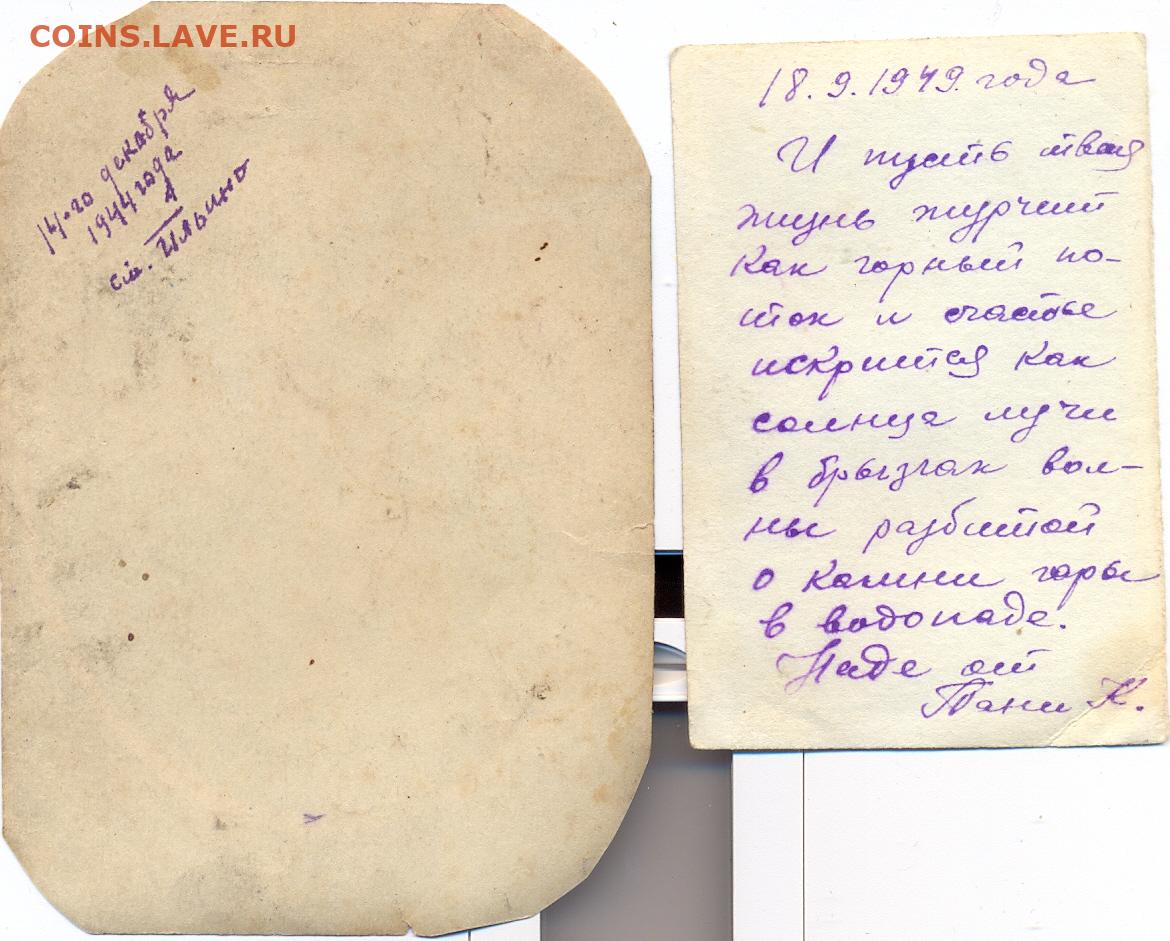 COINS.LAVE.RU
14-го декабря
1944 года
ст. Ильино
18.9.1949. года
И пусть твоя
жизнь журчит
как горный по-
ток и счастье
искрится как
солнца лучи
в брызгах вол-
ны разбитой
о камни горы
в водопаде.
Наде от
Тани К.